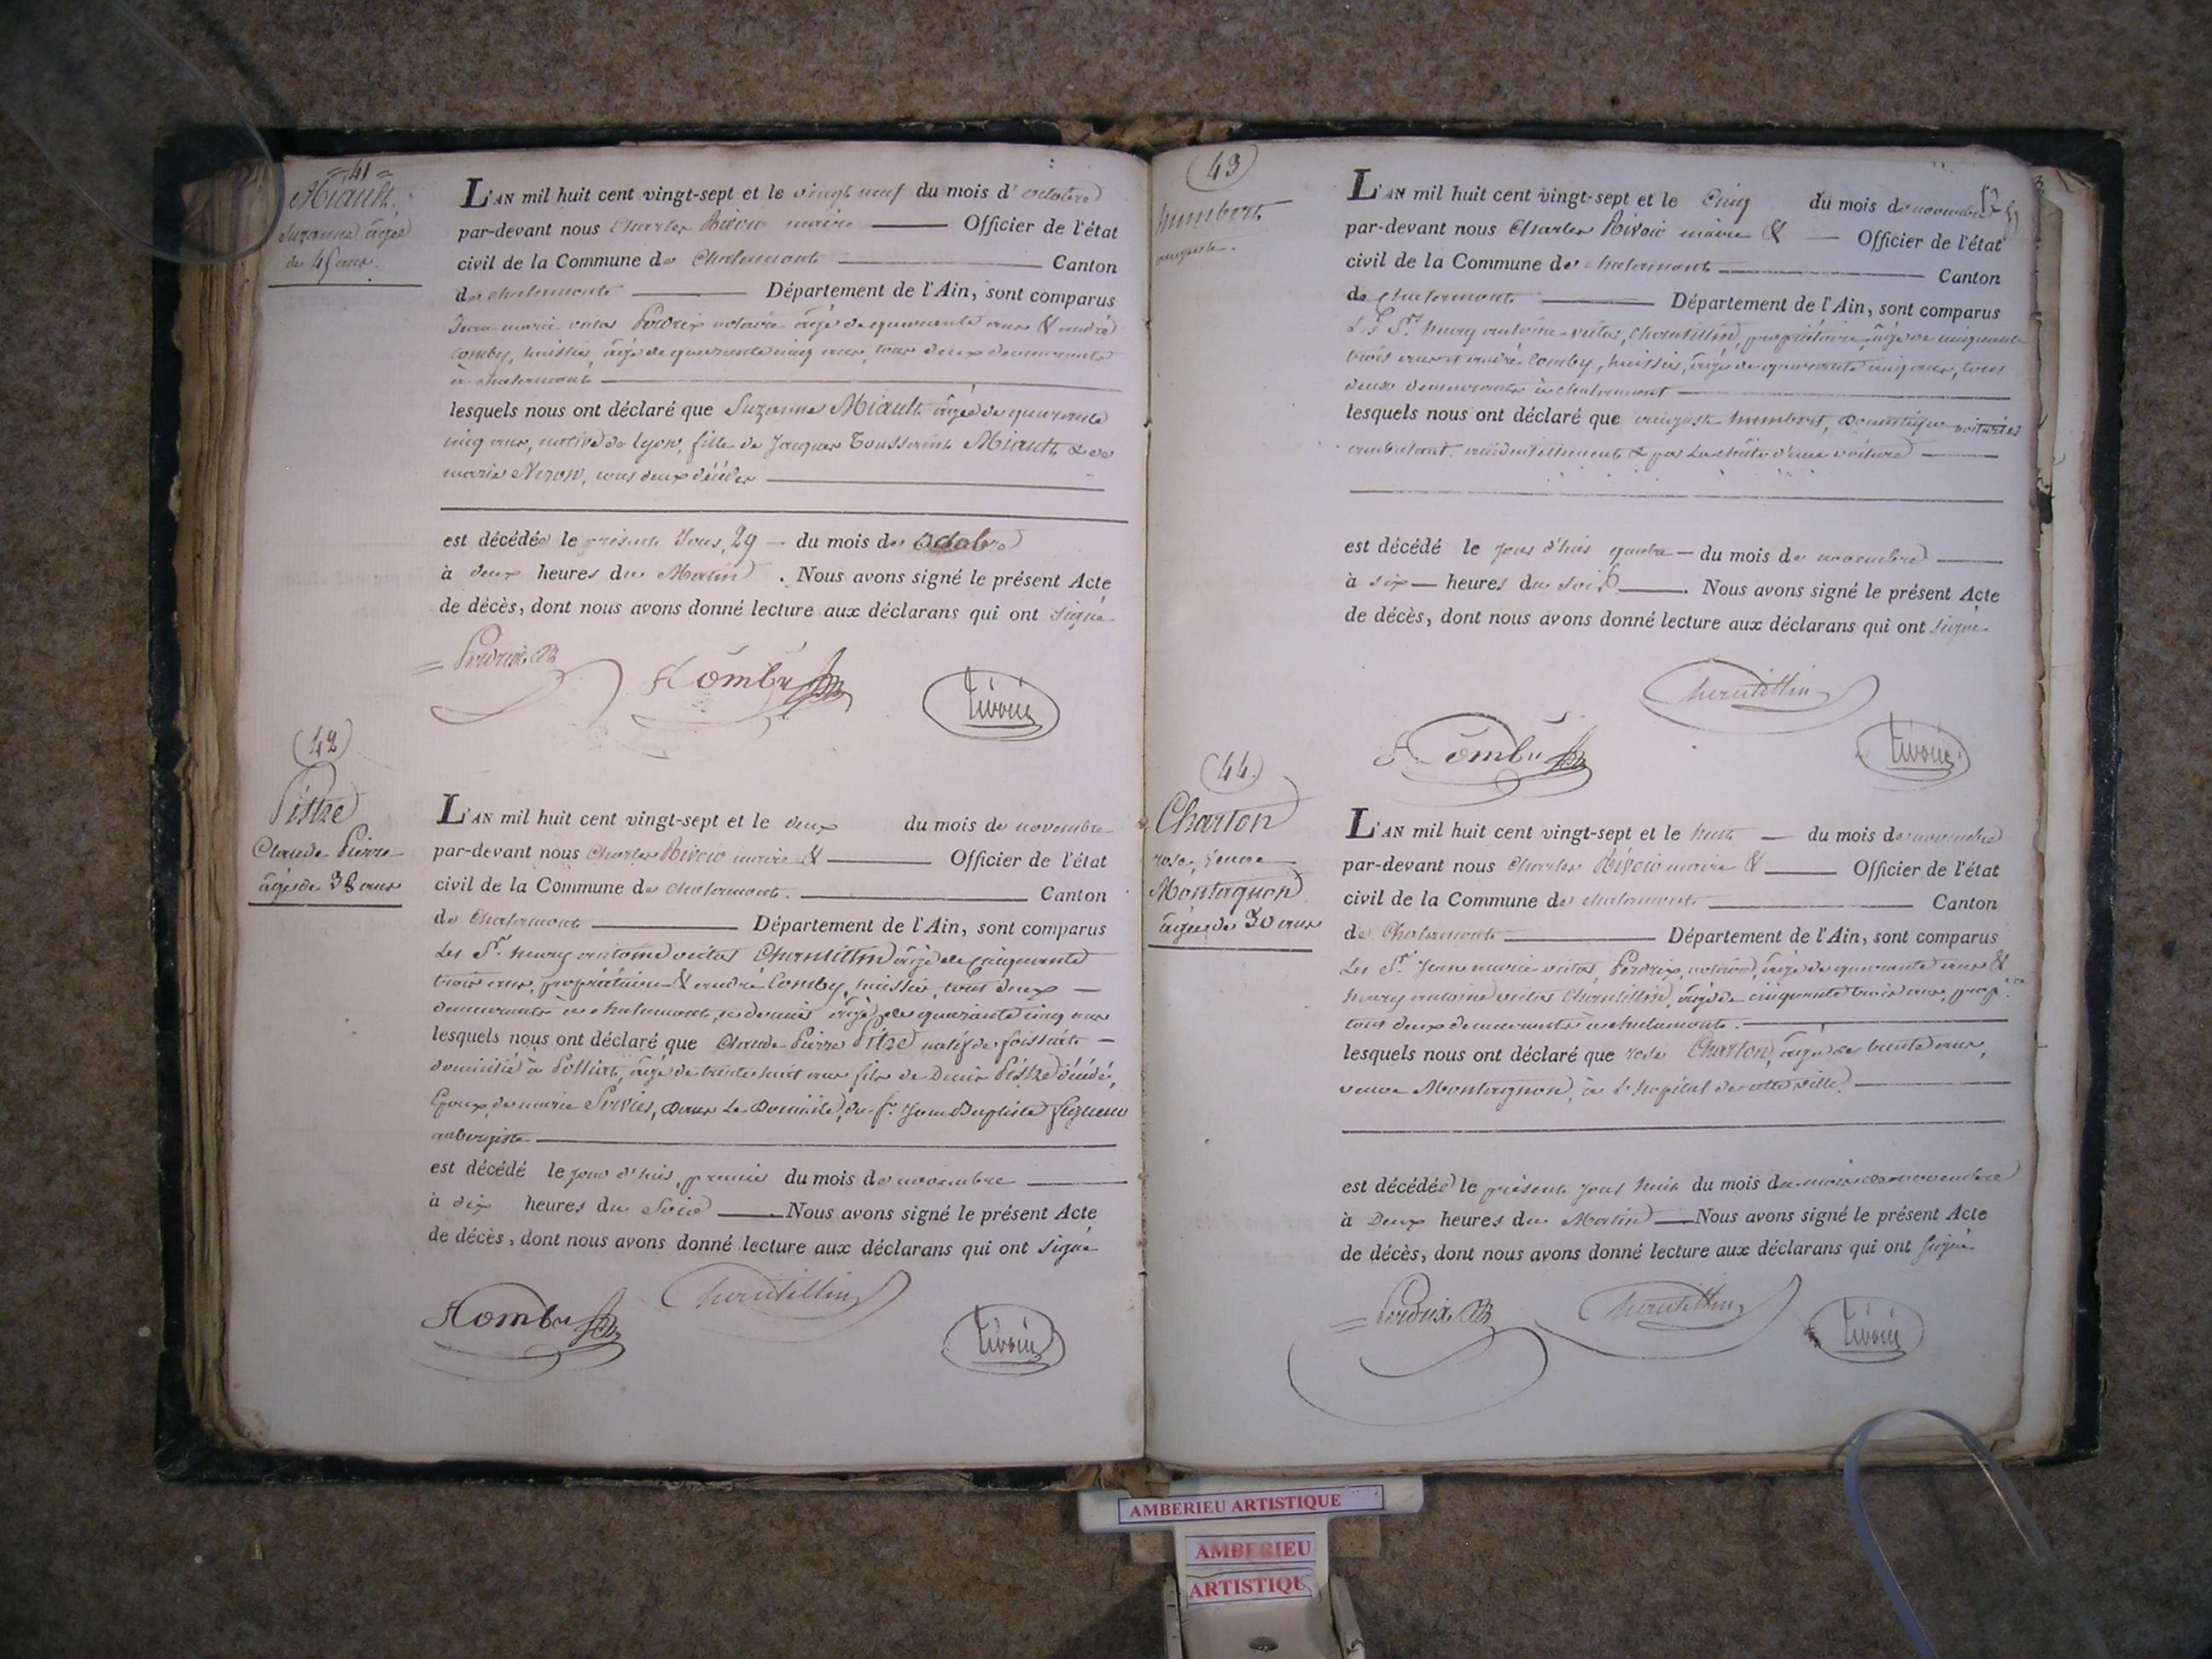 = 41 =
Miault,
Suzanne âgée
de 45 ans.
L'AN mil huit cent vingt-sept et le vingt neuf du mois d'octobre
par-devant nous Charles Rivoir maire Officier de l'état
civil de la Commune de Chalamont Canton
de chalamont Département de l'Ain, sont comparus
Jean marie victor Perdrix notaire âgé de quarante ans & andré
Comby, huissier, âgé de quarante cinq ans, tous deux demeurants
à chalamont
lesquels nous ont déclaré que Suzanne Miault âgée de quarante
cinq ans, native de Lyon, fille de Jacques Toussaint Miault & de
marie Neron, tous deux décédés
est décédée le présent Jour, 29 du mois de Octobre
à deux heures du Matin. Nous avons signé le présent Acte
de décès, dont nous avons donné lecture aux déclarans qui ont signé
Perdrix
A Comby
Rivoir
(42)
Pistre
Claude Pierre
âgé de 38 ans
L'AN mil huit cent vingt-sept et le deux du mois de novembre
par-devant nous Charles Rivoir maire & Officier de l'état
civil de la Commune de chalamont. Canton
de Chalamont Département de l'Ain, sont comparus
Les Sr. henry antoine victor Chantillin âgé de cinquante
trois ans, propriétaire & andré Comby, huissier, tous deux
demeurants à chalamont, ce dernier âgé de quarante cinq ans
lesquels nous ont déclaré que Claude Pierre Pistre natif de foissiat
domicilié à Polliat, âgé de trente huit ans fils de Denis Pistre décédé,
Epoux de marie, dans Le Domicile du Sr. Jean Baptiste
aubergiste
est décédé le jour d'hier, premier du mois de novembre
à dix heures du Soir Nous avons signé le présent Acte
de décès, dont nous avons donné lecture aux déclarans qui ont signé
A Comby
Chantillin
Rivoir
(43)
humbert
auguste.
L'AN mil huit cent vingt-sept et le Cinq du mois de novembre
par-devant nous Charles Rivoir maire & Officier de l'état
civil de la Commune de chalamont Canton
de chalamont Département de l'Ain, sont comparus
Les Srs. henry antoine victor Chantillin, propriétaire, âgé de cinquante
trois ans et andré Comby, huissier, âgé de quarante cinq ans, tous
deux demeurants à chalamont
lesquels nous ont déclaré que auguste humbert, domestique voiturier
ambulant, accidentellement & par La chûte d'une voiture
est décédé le jour d'hier quatre du mois de novembre
à six heures du soir. Nous avons signé le présent Acte
de décès, dont nous avons donné lecture aux déclarans qui ont signé
Chantillin
A Comby
Rivoir
(44.)
Charton
rose, veuve
Montagnon
âgée de 30 ans
L'AN mil huit cent vingt-sept et le huit du mois de novembre
par-devant nous Charles Rivoir maire & Officier de l'état
civil de la Commune de chalamont Canton
de Chalamont Département de l'Ain, sont comparus
Les Sr. Jean marie victor, Perdrix, notaire, âgé de quarante ans &
henry antoine victor Chantillin, âgé de cinquante trois ans, prop.re
tous deux demeurants à chalamont.
lesquels nous ont déclaré que rose Charton, âgée de trente ans,
veuve Montagnon, à L'hopital de cette ville
est décédée le présent jour huit du mois du mois de novembre
à Deux heures du Matin Nous avons signé le présent Acte
de décès, dont nous avons donné lecture aux déclarans qui ont signé
Perdrix
Chantillin
Rivoir
AMBERIEU ARTISTIQUE
AMBERIEU
ARTISTIQU